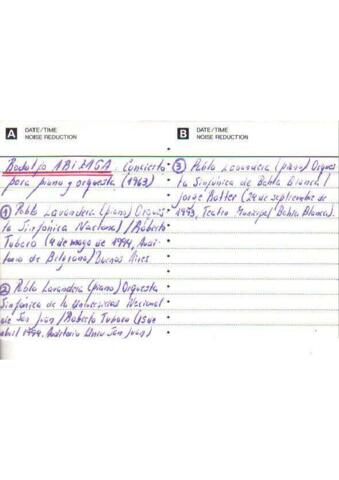 A DATE/TIME
NOISE REDUCTION
Rodolfo ARIZAGA. Concierto
para piano y orquesta (1963)
① Pablo Lavandera (piano) Orques
ta Sinfónica Nacional / Roberto
Tubaro (4 de mayo de 1994, Audi
torio de Belgrano) Buenos Aires
② Pablo Lavandera (piano) Orquesta
Sinfónica de la Universidad Nacional
de San Juan / Roberto Tubaro (15 de
abril 1994, Auditorio Univ San Juan)
B DATE/TIME
NOISE REDUCTION
③ Pablo Lavandera (piano) Orques
ta Sinfónica de Bahía Blanca /
Jorge Rotter (24 de septiembre de
1993, Teatro Municipal Bahía Blanca).